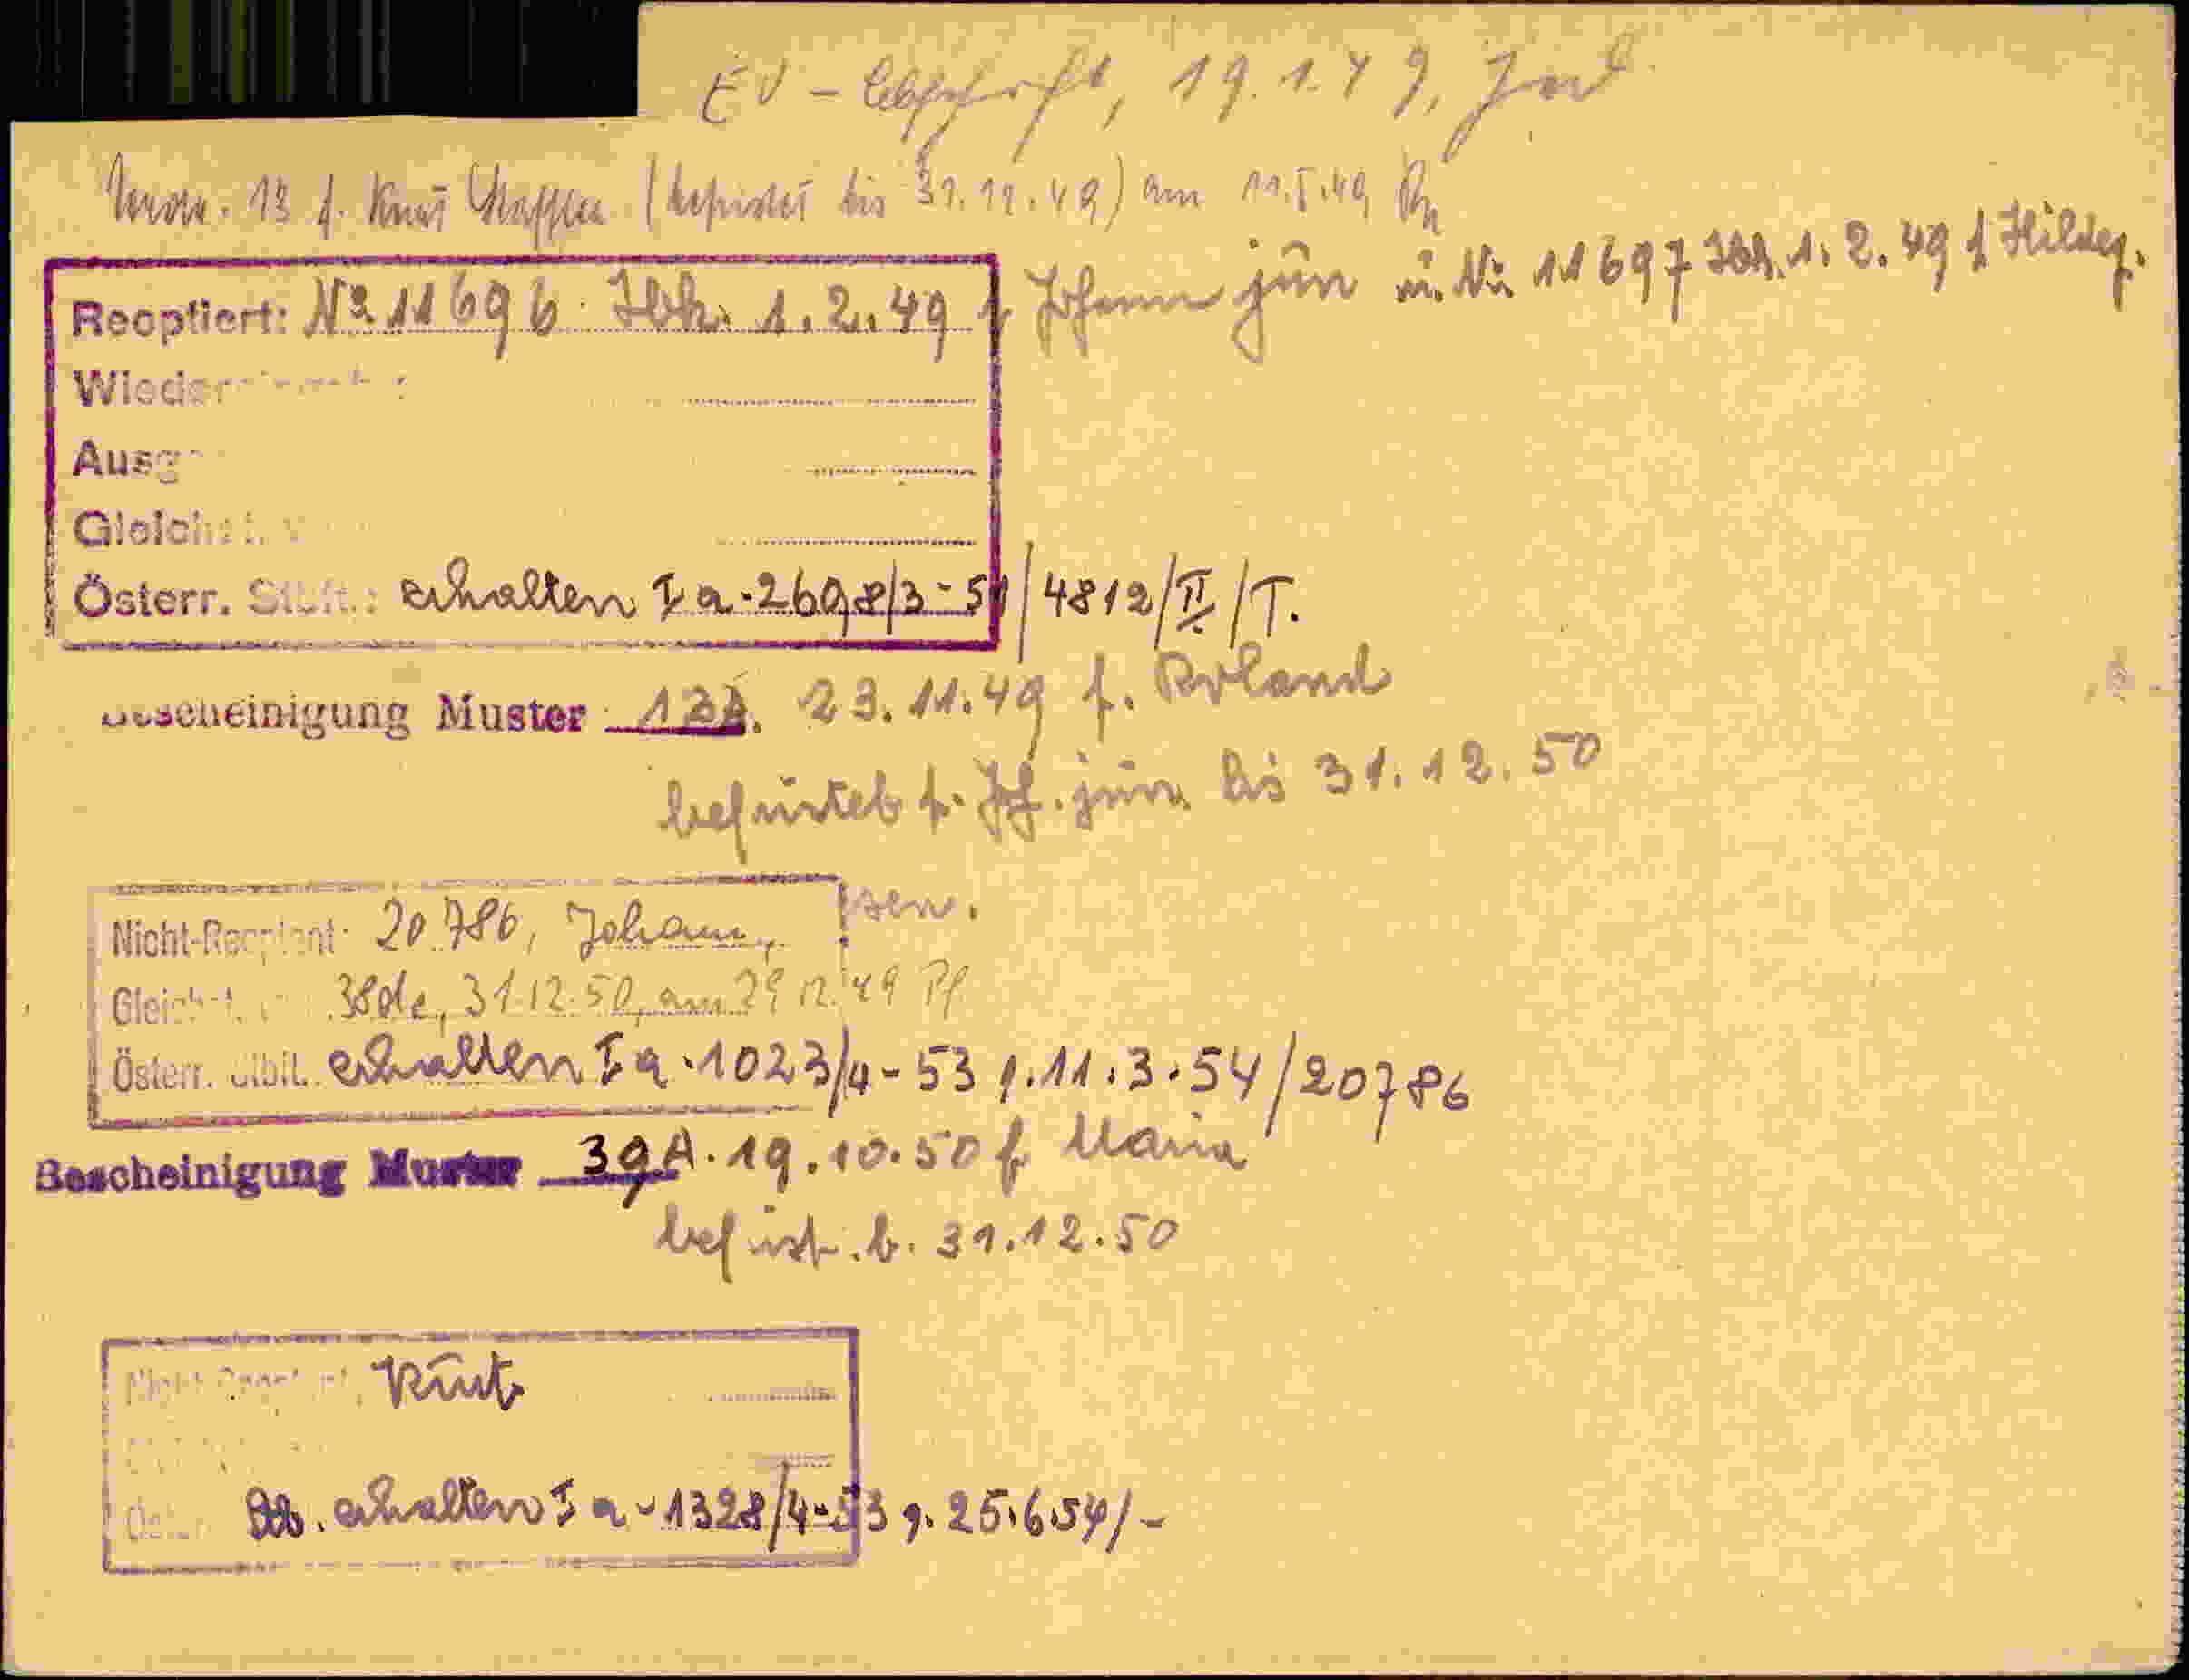 EV - Abschrift, 19.1.49,
13 f. Kurt (befristet bis 31.12.49) am 11.I.49
Reoptiert: No 11696 Ibk. 1.2.49 f Johann jun u. Nr. 11697 Ibk. 1.2.49 f Hildeg.
Österr. Stbft.: erhalten Ia-2698/3-51/4812/II/T.
Bescheinigung Muster 13A. 23.11.49 f. Roland
befristet f. Joh. jun. bis 31.12.50
Nicht-Reoptant: 20.786, Johann, sen.
38de, 31.12.50, am 29.12.49 Pf
Österr. Stbft. erhalten Ia-1023/4-53 v. 11.3.54/20786
Bescheinigung Muster 39A. 19.10.50 f Maria
befrist. b. 31.12.50
Nicht-Reoptant: Kurt
Stb. erhalten Ia-1328/4-53 v. 25.6.54/-